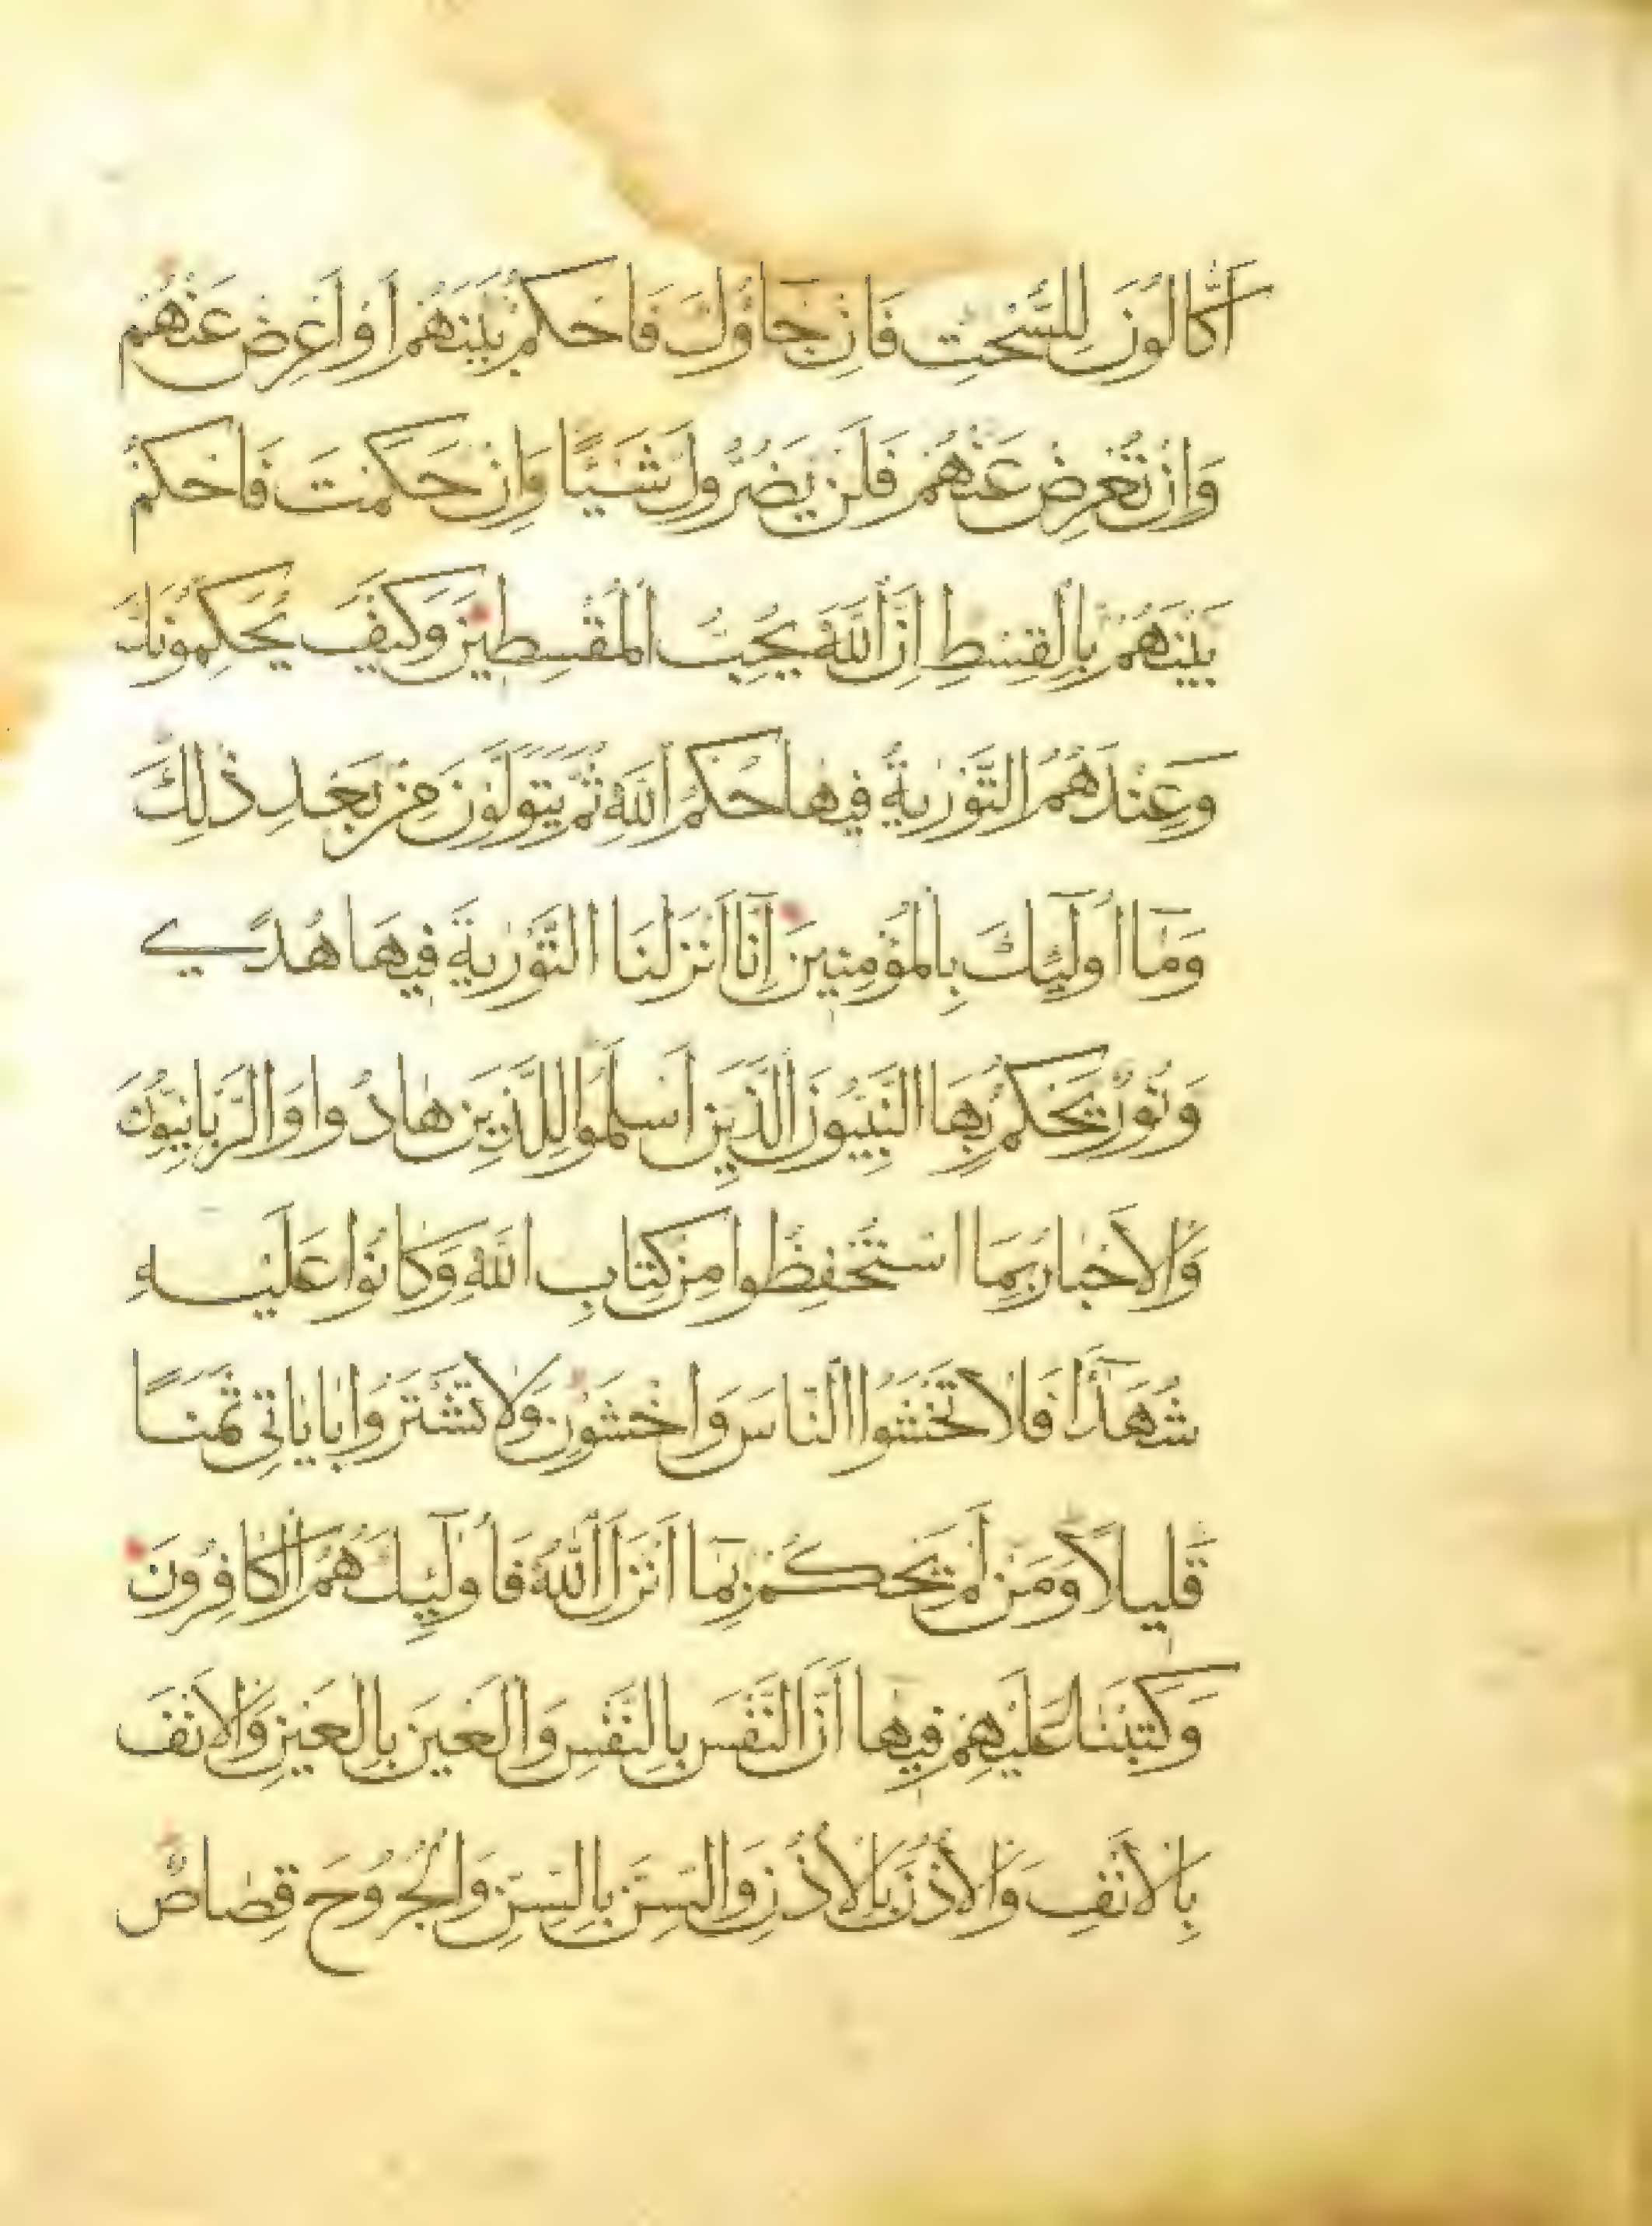 أَكَّالُونَ لِلسُّحْتِ فَاِنْ جَاؤُكَ فَاحْكُمْ بَيْنَهُمْ اَوْ اَعْرِضْ عَنْهُمْ
وَاِنْ تُعْرِضْ عَنْهُمْ فَلَنْ يَضُرُّوكَ شَيْئًا وَاِنْ حَكَمْتَ فَاحْكُمْ
بَيْنَهُمْ بِالْقِسْطِ اِنَّ اللّٰهَ يُحِبُّ الْمُقْسِطِينَ وَكَيْفَ يُحَكِّمُونَكَ
وَعِنْدَهُمُ التَّوْرٰيةُ فِيهَا حُكْمُ اللّٰهِ ثُمَّ يَتَوَلَّوْنَ مِنْ بَعْدِ ذٰلِكَ
وَمَا اُولٰٓئِكَ بِالْمُؤْمِنِينَ اِنَّا اَنْزَلْنَا التَّوْرٰيةَ فِيهَا هُدًى
وَنُورٌ يَحْكُمُ بِهَا النَّبِيُّونَ الَّذِينَ اَسْلَمُوا لِلَّذِينَ هَادُوا وَالرَّبَّانِيُّونَ
وَالْاَحْبَارُ بِمَا اسْتُحْفِظُوا مِنْ كِتَابِ اللّٰهِ وَكَانُوا عَلَيْهِ
شُهَدَآءَ فَلَا تَخْشَوُا النَّاسَ وَاخْشَوْنِ وَلَا تَشْتَرُوا بِاٰيَاتِي ثَمَنًا
قَلِيلًا وَمَنْ لَمْ يَحْكُمْ بِمَا اَنْزَلَ اللّٰهُ فَاُولٰٓئِكَ هُمُ الْكَافِرُونَ
وَكَتَبْنَا عَلَيْهِمْ فِيهَا اَنَّ النَّفْسَ بِالنَّفْسِ وَالْعَيْنَ بِالْعَيْنِ وَالْاَنْفَ
بِالْاَنْفِ وَالْاُذُنَ بِالْاُذُنِ وَالسِّنَّ بِالسِّنِّ وَالْجُرُوحَ قِصَاصٌ